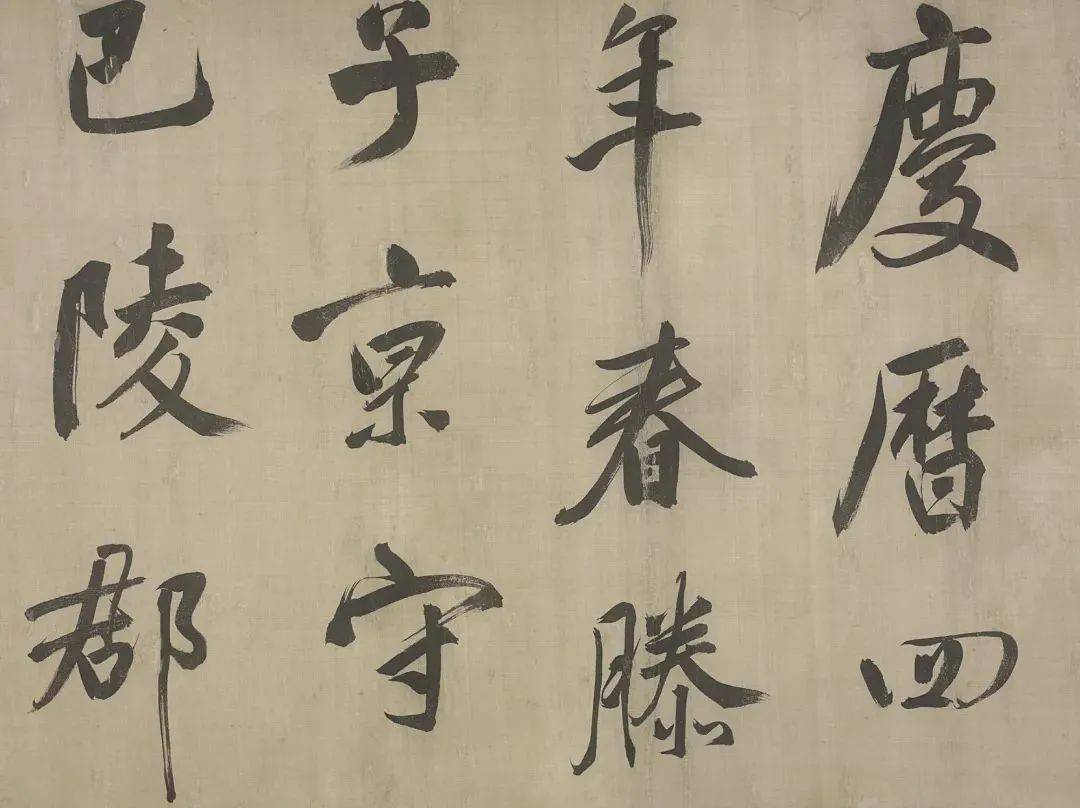 慶曆四
年春滕
子京守
巴陵郡